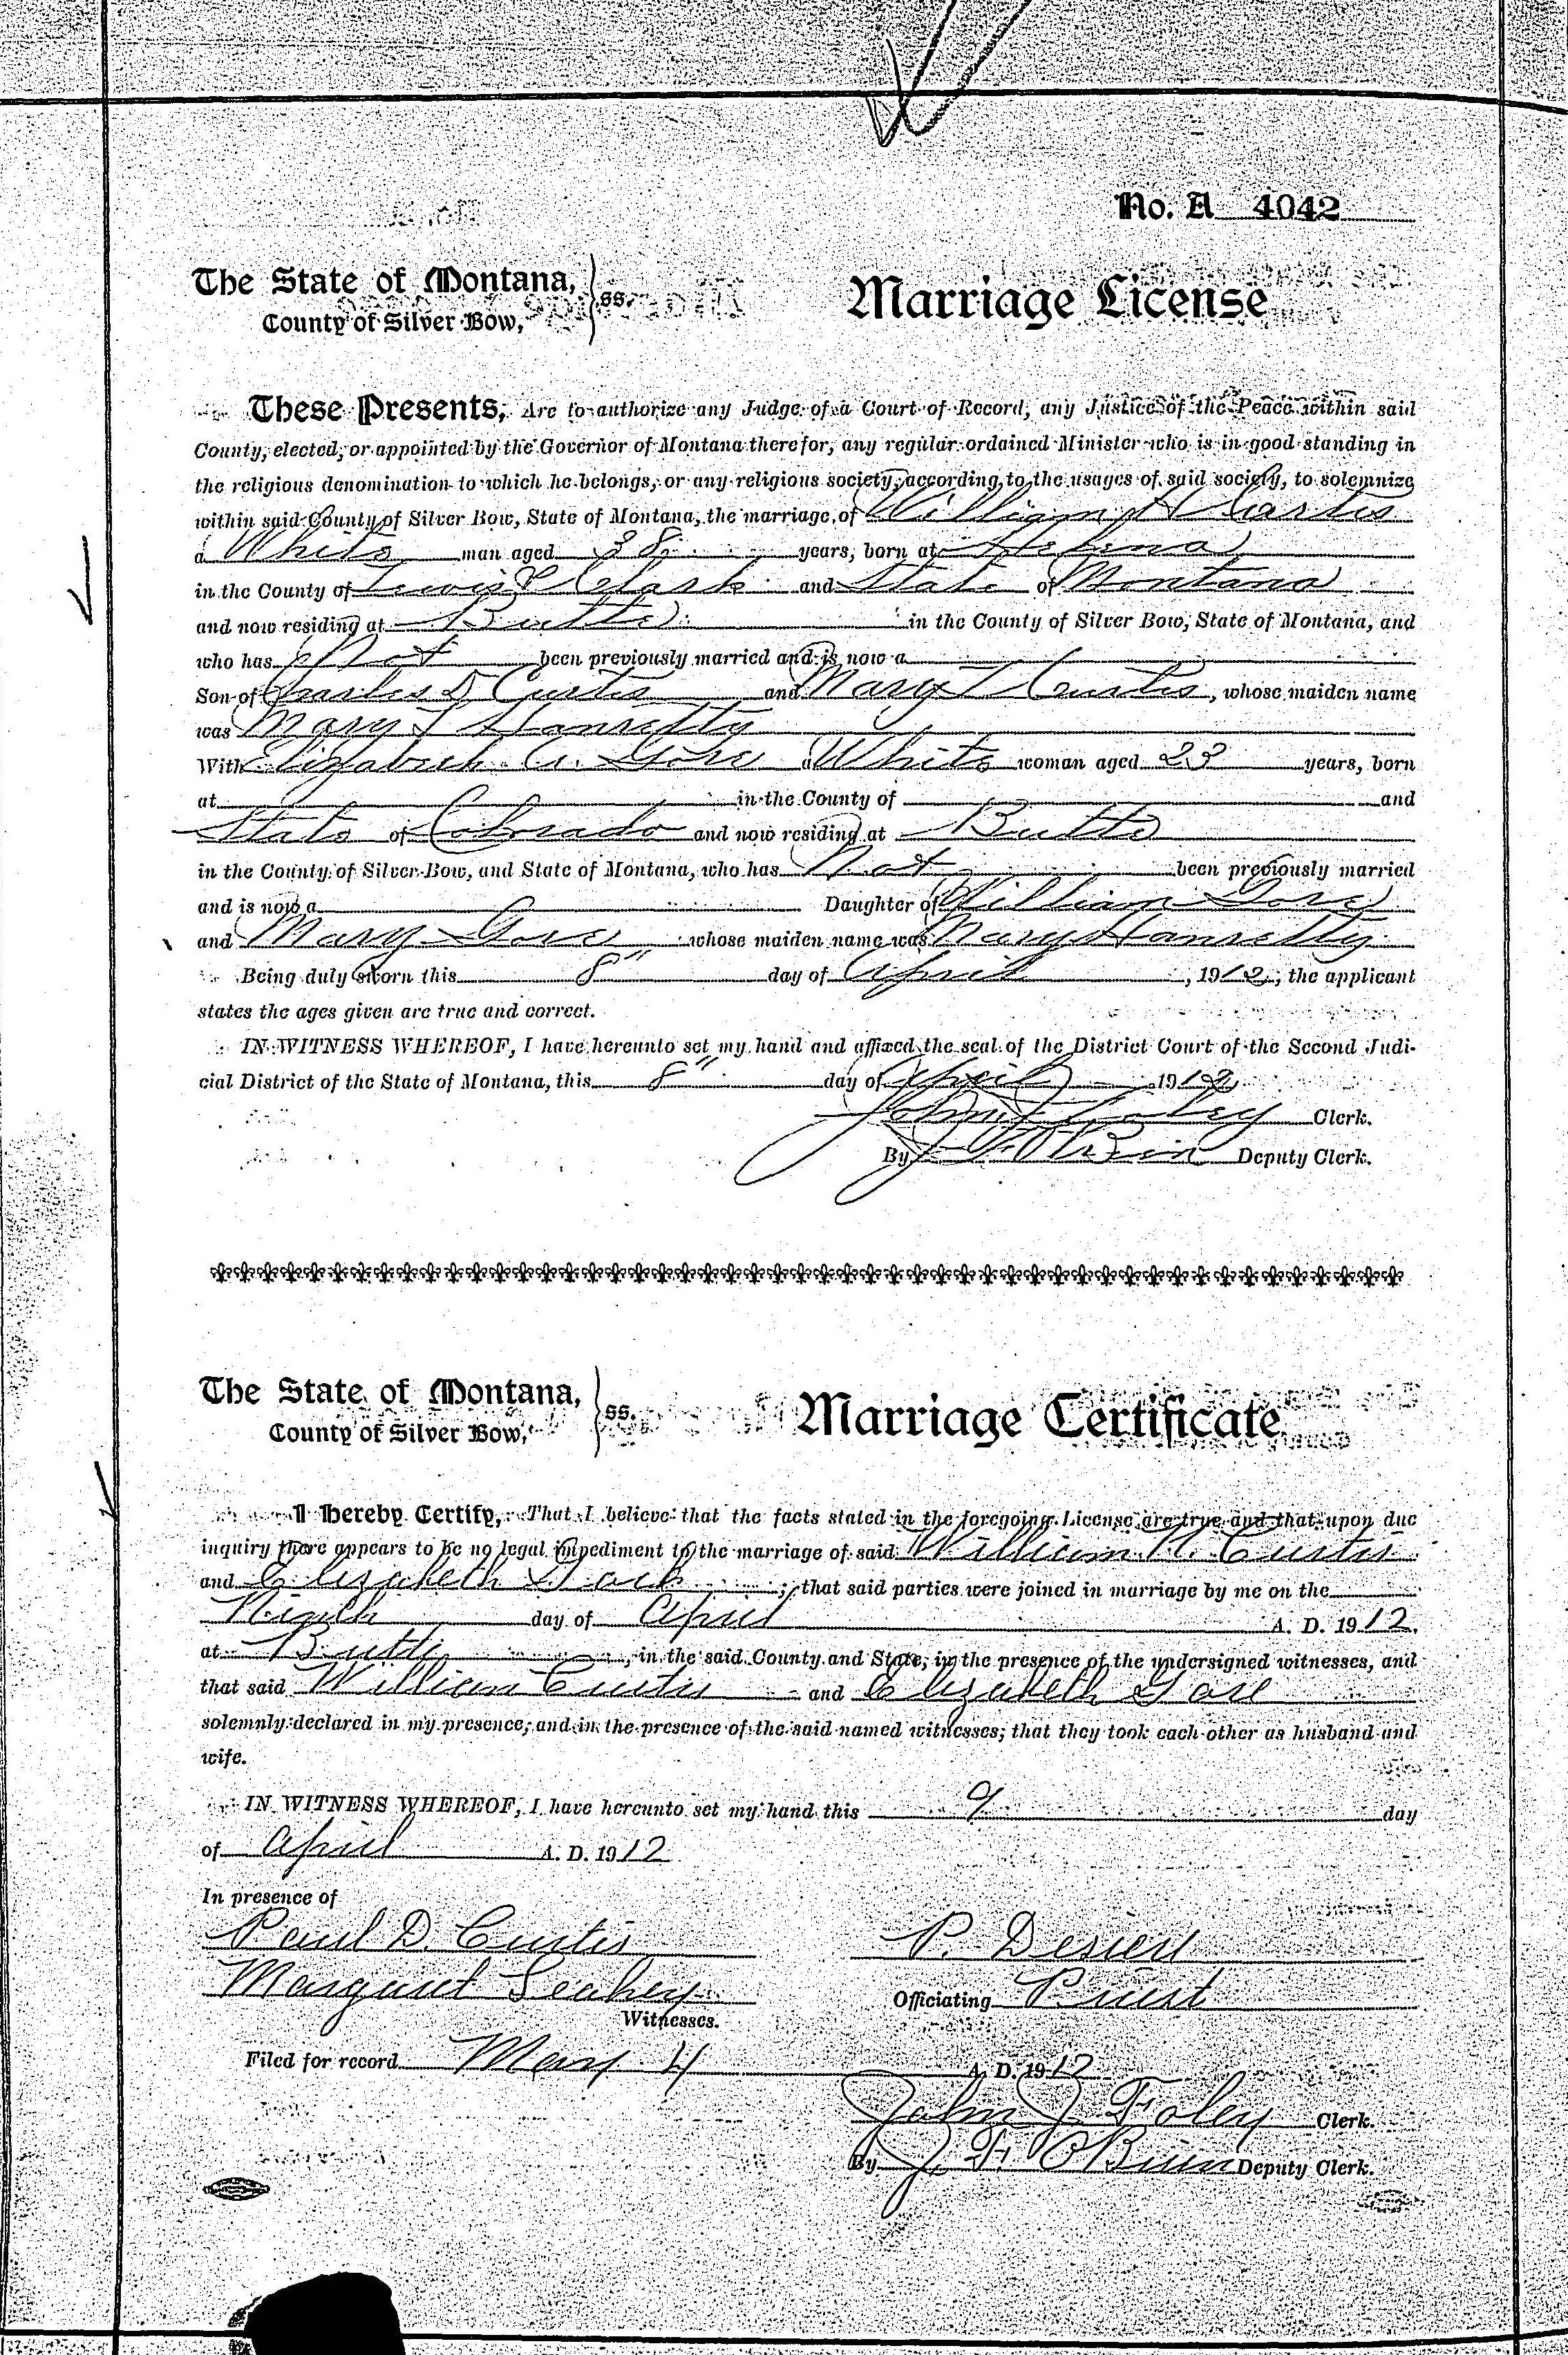 No. A 4042
The State of Montana, ss.
County of Silver Bow,
Marriage License
These Presents, Are to authorize any Judge of a Court of Record, any Justice of the Peace within said
County, elected, or appointed by the Governor of Montana therefor, any regular ordained Minister who is in good standing in
the religious denomination to which he belongs, or any religious society, according to the usages of said society, to solemnize
within said County of Silver Bow, State of Montana, the marriage of William H Curtis
a White man aged 38 years, born at Helena
in the County of Lewis & Clark and State of Montana
and now residing at Butte in the County of Silver Bow, State of Montana, and
who has Not been previously married and is now a
Son of Charles D Curtis and Mary T Curtis, whose maiden name
was Mary T Hanretty
With Elizabeth A. Gore a White woman aged 23 years, born
at in the County of and
State of Colorado and now residing at Butte
in the County of Silver Bow, and State of Montana, who has Not been previously married
and is now a Daughter of William Gore
and Mary Gore whose maiden name was Mary Hanretty
Being duly sworn this 8" day of April, 1912, the applicant
states the ages given are true and correct.
IN WITNESS WHEREOF, I have hereunto set my hand and affixed the seal of the District Court of the Second Judi-
cial District of the State of Montana, this 8" day of April 1912
John J Foley Clerk.
By J F O'Brien Deputy Clerk.
The State of Montana, ss.
County of Silver Bow,
Marriage Certificate
I Hereby Certify, That I believe that the facts stated in the foregoing License are true and that upon due
inquiry there appears to be no legal impediment to the marriage of said William H. Curtis
and Elizabeth Gore; that said parties were joined in marriage by me on the
Ninth day of April A. D. 1912,
at Butte, in the said County and State, in the presence of the undersigned witnesses, and
that said William Curtis and Elizabeth Gore
solemnly declared in my presence, and in the presence of the said named witnesses, that they took each other as husband and
wife.
IN WITNESS WHEREOF, I have hereunto set my hand this 9 day
of April A. D. 1912
In presence of
Paul D. Curtis
P. Desiere
Margaret Leahey
Witnesses.
Officiating Priest
Filed for record May 4 A. D. 1912
John J. Foley Clerk.
By J. F. O'Brien Deputy Clerk.